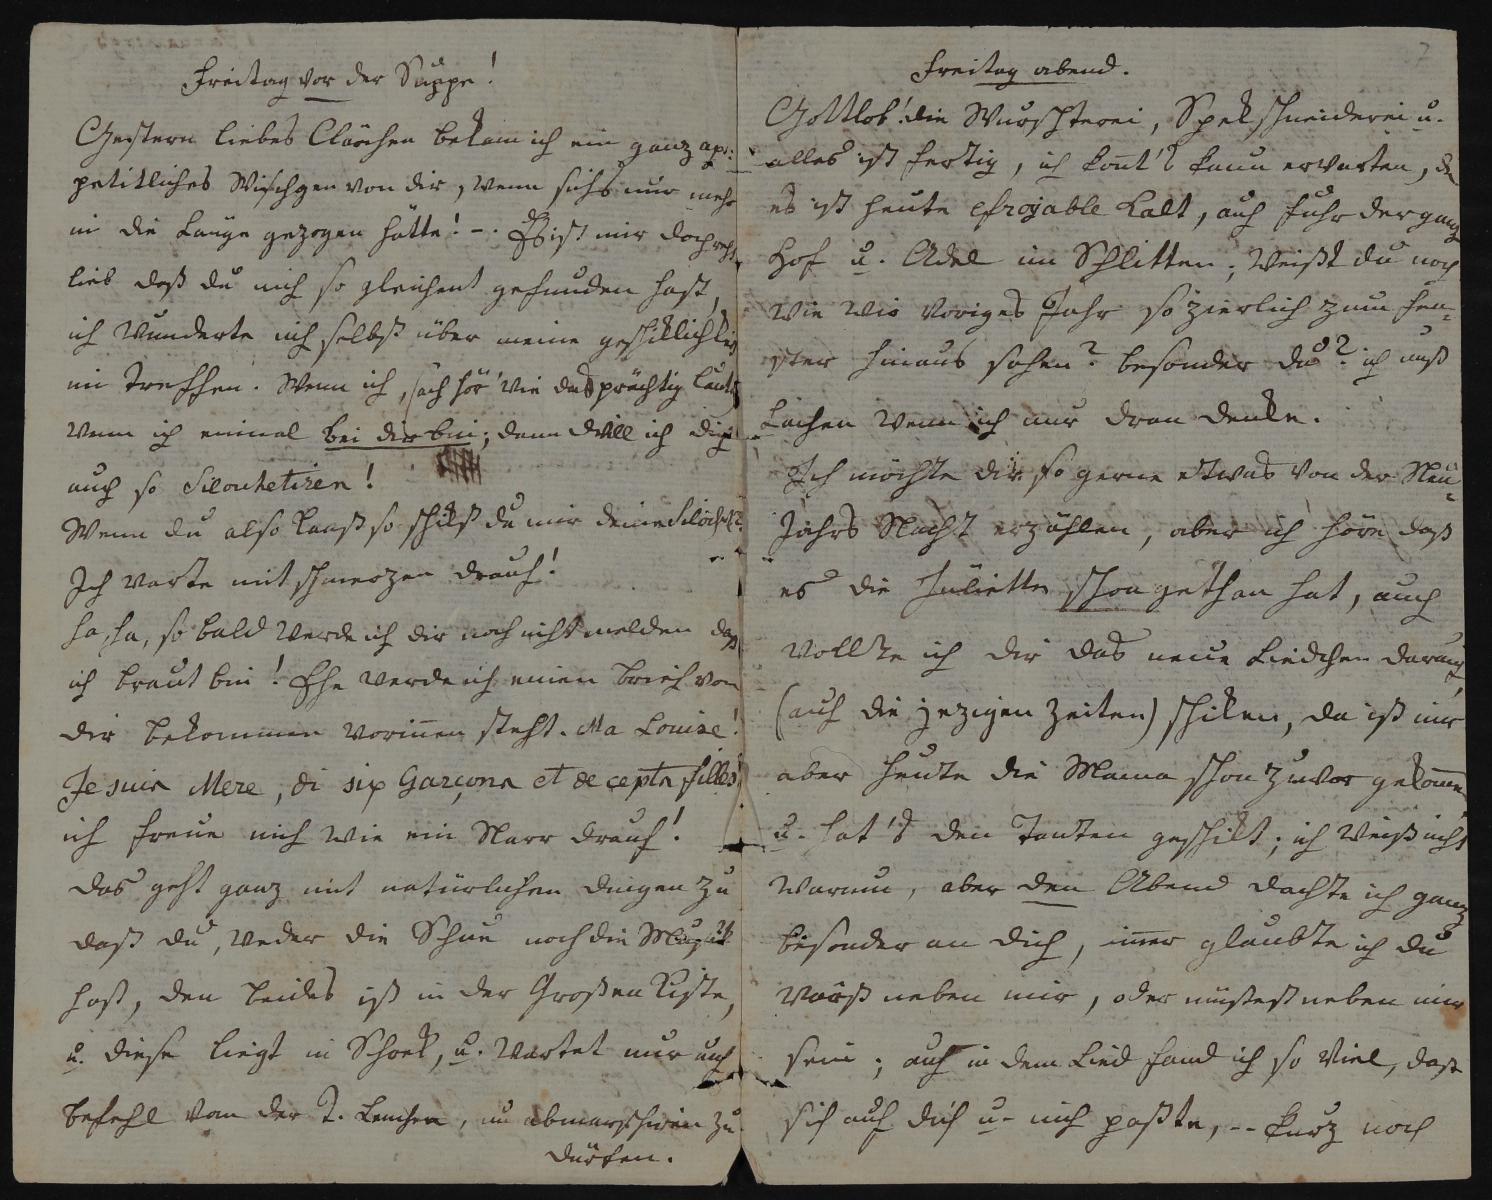 Freitag vor der Suppe!
Gestern liebes Clärchen bekam ich ein ganz ap=
petitliches Wischgen von dir, wenn sichs nur mehr
in die Länge gezogen hätte! -. Es ist mir doch recht
lieb daß du mich so gleichent gefunden hast,
ich wunderte mich selbst über meine geschiklichkeit
im treffen. Wenn ich, (ach hör' wie das prächtig lautet)
wenn ich einmal bei dir bin; dann will ich dich
auch so Silouhetiren!
Wenn du also kanst so schikst du mir deine
Ich warte mit schmerzen drauf!
ha, ha, so bald werde ich dir noch nicht melden daß
ich braut bin! Ehe werde ich einen brief von
dir bekommen worinnen steht. Ma Louise!
Je suis Mere, di six Garçons et de cepts filles!
ich freue mich wie ein Narr drauf!
das geht ganz mit natürlichen dingen zu
daß du, weder die Schue noch die Musik
hast, den beides ist in der Großen Kiste,
u. diese liegt in Schork, u. wartet nur auf
befehl von der T. Lenchen, um abmarschiren zu
dürfen.
7
Freitag abend.
Gottlob! die Wurschterei, Spekschneiderei u.
alles ist fertig, ich kont's kaum erwarten, den
es ist heute efrojable kalt, auch fuhr der ganze
Hof u. Adel im Schlitten; weißt du noch
wie wir voriges Jahr so zierlich zum Fen=
ster hinaus sahen? besonder du? ich muß
Lachen wenn ich nur dran denke.
Ich möchte dir so gerne etwas von der Neu=
jahrs Nacht erzählen, aber ich höre daß
es die Juliette schon gethan hat, auch
wollte ich dir das neue Liedchen darauf,
(auf die jezigen Zeiten) schiken, da ist mir
aber heute die Mama schon zuvor gekommen
u. hat's den Tanten geschikt; ich weiß nicht
warum, aber den Abend dachte ich ganz
besonder an dich, immer glaubte ich du
wärst neben mir, oder müstest neben mir
sein; auch in dem Lied fand ich so viel, daß
sich auf dich u. mich paßte, -- kurz noch